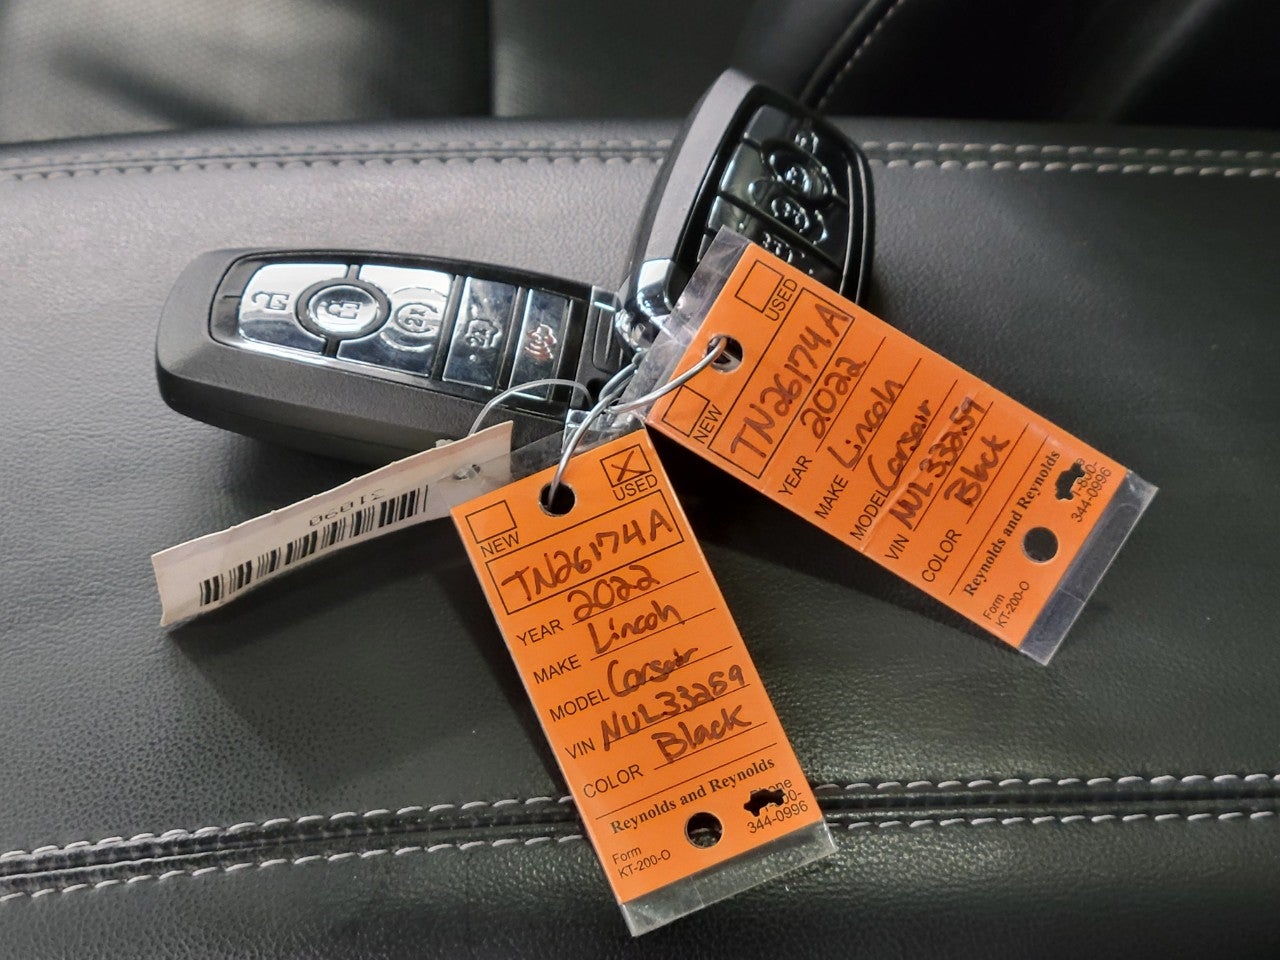 31090
NEW
USED
TN26174A
YEAR 2022
MAKE Lincoln
MODEL Corsair
VIN NUL33259
COLOR Black
Reynolds and Reynolds
Form
KT-200-O
344-0996
NEW
USED
TN26174A
YEAR 2022
MAKE Lincoln
MODEL Corsair
VIN NUL33259
COLOR Black
Reynolds and Reynolds
Form
KT-200-O
344-0996
2x
2x